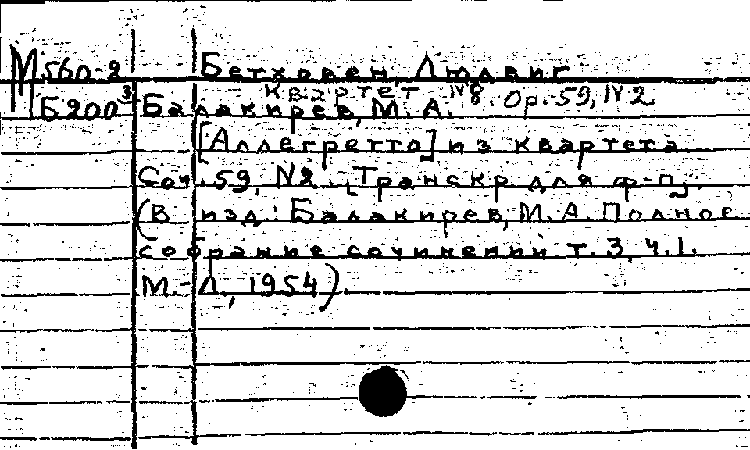 М 560-2 Бетховен, Людвиг
Квартет №8. Op. 59, №2
Б200³ Балакирев, М. А.
[Аллегретто] из квартета
Соч. 59, №2. [Транскр. для ф-п]
(В изд: Балакирев, М. А. Полное
собрание сочинений т. 3, ч. 1.
М.-Л., 1954).